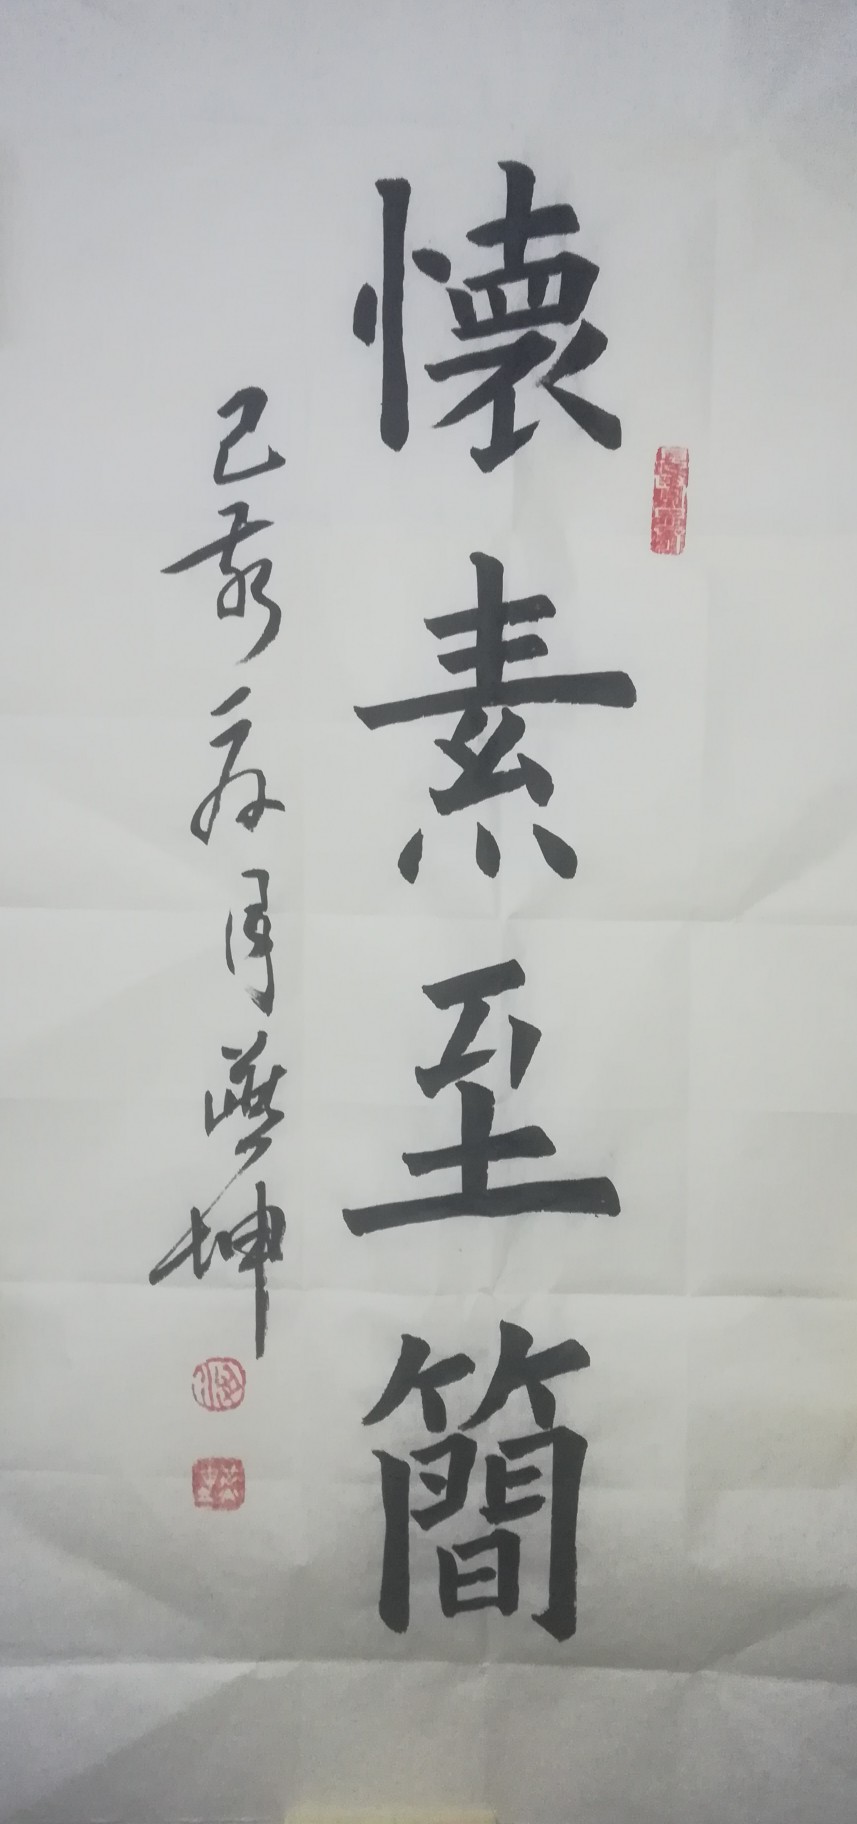 懷素至簡
己亥夏月燕坤